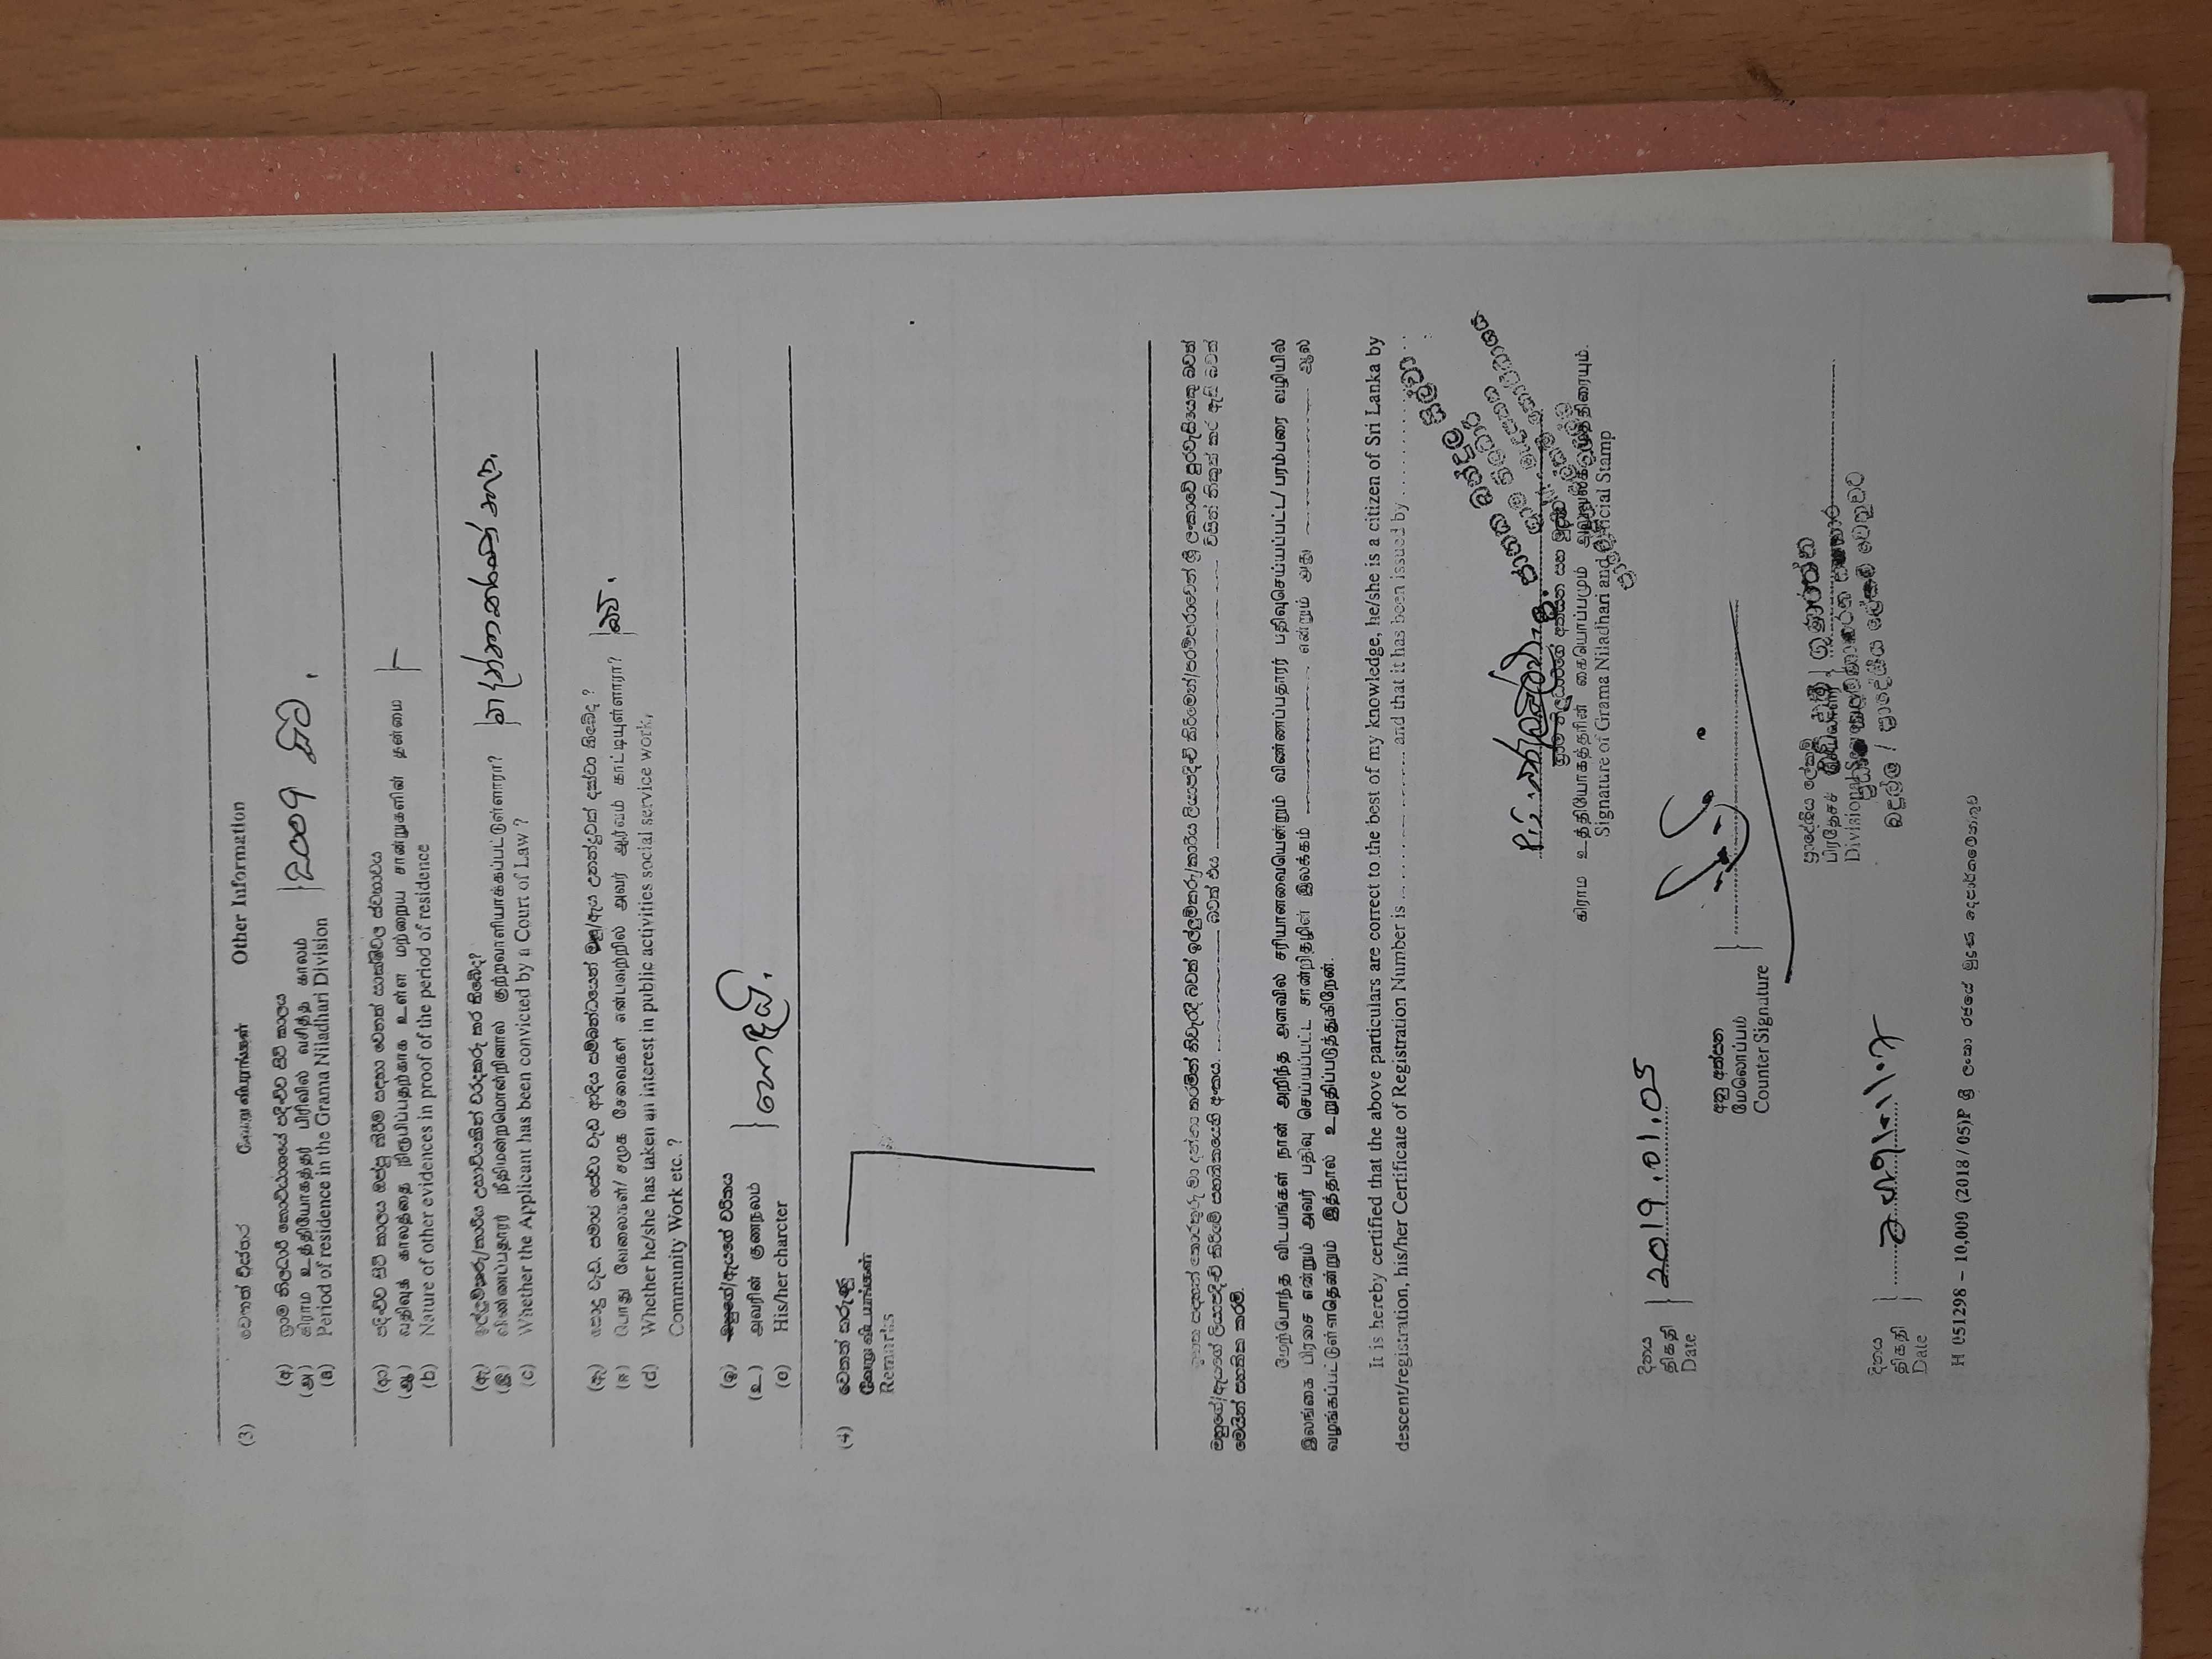 (3) වෙනත් විස්තර வேறு விபரங்கள் Other Information
(අ) ග්‍රාම නිලධාරී කොට්ඨාශයේ පදිංචිව සිටි කාලය
(அ) கிராம உத்தியோகத்தர் பிரிவில் வசித்த காலம்
(a) Period of residence in the Grama Niladhari Division
2009 සිට .
(ආ) පදිංචිව සිටි කාලය ඔප්පු කිරීම සඳහා වෙනත් සාක්ෂිවල ස්වභාවය
(ஆ) வதிவுக் காலத்தை நிரூபிப்பதற்காக உள்ள மற்றைய சான்றுகளின் தன்மை
(b) Nature of other evidences in proof of the period of residence
(ඇ) ඉල්ලුම්කරු/කාරිය උසාවියකින් වරදකරු කර තිබේද?
(இ) விண்ணப்பதாரர் நீதிமன்றமொன்றினால் குற்றவாளியாக்கப்பட்டுள்ளாரா?
(c) Whether the Applicant has been convicted by a Court of Law ?
(ඈ) පොදු වැඩ, සමාජ සේවා වැඩ ආදිය සම්බන්ධයෙන් ඔහු/ඇය උනන්දුවක් දක්වා තිබේද ?
(ஈ) பொது வேலைகள்/ சமூக சேவைகள் என்பவற்றில் அவர் ஆர்வம் காட்டியுள்ளாரா?
(d) Whether he/she has taken an interest in public activities social service work,
Community Work etc. ?
ඔව් .
(ඉ) ඔහුගේ/ඇයගේ චරිතය
(உ) அவரின் குணநலம்
(e) His/her charcter
හොඳයි .
(4) වෙනත් කරුණු
வேறு விடயங்கள்
Remarks
ඉහත සඳහන් තොරතුරු මා දන්නා තරමින් නිවැරදි බවත් ඉල්ලුම්කරු/කාරිය ලියාපදිංචි කිරීමෙන්/පරම්පරාවෙන් ශ්‍රී ලංකාවේ පුරවැසියෙකු බවත්
ඔහුගේ/ඇයගේ ලියාපදිංචි කිරීමේ සහතිකයෙහි අංකය ........ බවත් එය ........ විසින් නිකුත් කර ඇති බවත්
මෙයින් සහතික කරමි.
மேற்போந்த விடயங்கள் நான் அறிந்த அளவில் சரியானவையென்றும் விண்ணப்பதாரர் பதிவுசெய்யப்பட்ட/ பரம்பரை வழியில்
இலங்கை பிரசை என்றும் அவர் பதிவு செய்யப்பட்ட சான்றிதழின் இலக்கம் ........ என்றும் அது ........ ஆல்
வழங்கப்பட்டுள்ளதென்றும் இத்தால் உறுதிப்படுத்துகிறேன்.
It is hereby certified that the above particulars are correct to the best of my knowledge, he/she is a citizen of Sri Lanka by
descent/registration, his/her Certificate of Registration Number is ........ and that it has been issued by ........
ග්‍රාම නිලධාරිගේ අත්සන සහ මුද්‍රාව
கிராம உத்தியோகத்தரின் கையொப்பமும் முத்திரையும்.
Signature of Grama Niladhari and Official Stamp
දිනය
திகதி
Date
2019.01.05
අනු අත්සන
மேலொப்பம்
Counter Signature
ප්‍රාදේශීය ලේකම්
பிரதேச செயலாளர்
Divisional Secretary
දිනය
திகதி
Date
H 051298 – 10,000 (2018 / 05)P ශ්‍රී ලංකා රජයේ මුද්‍රණ දෙපාර්තමේන්තුව